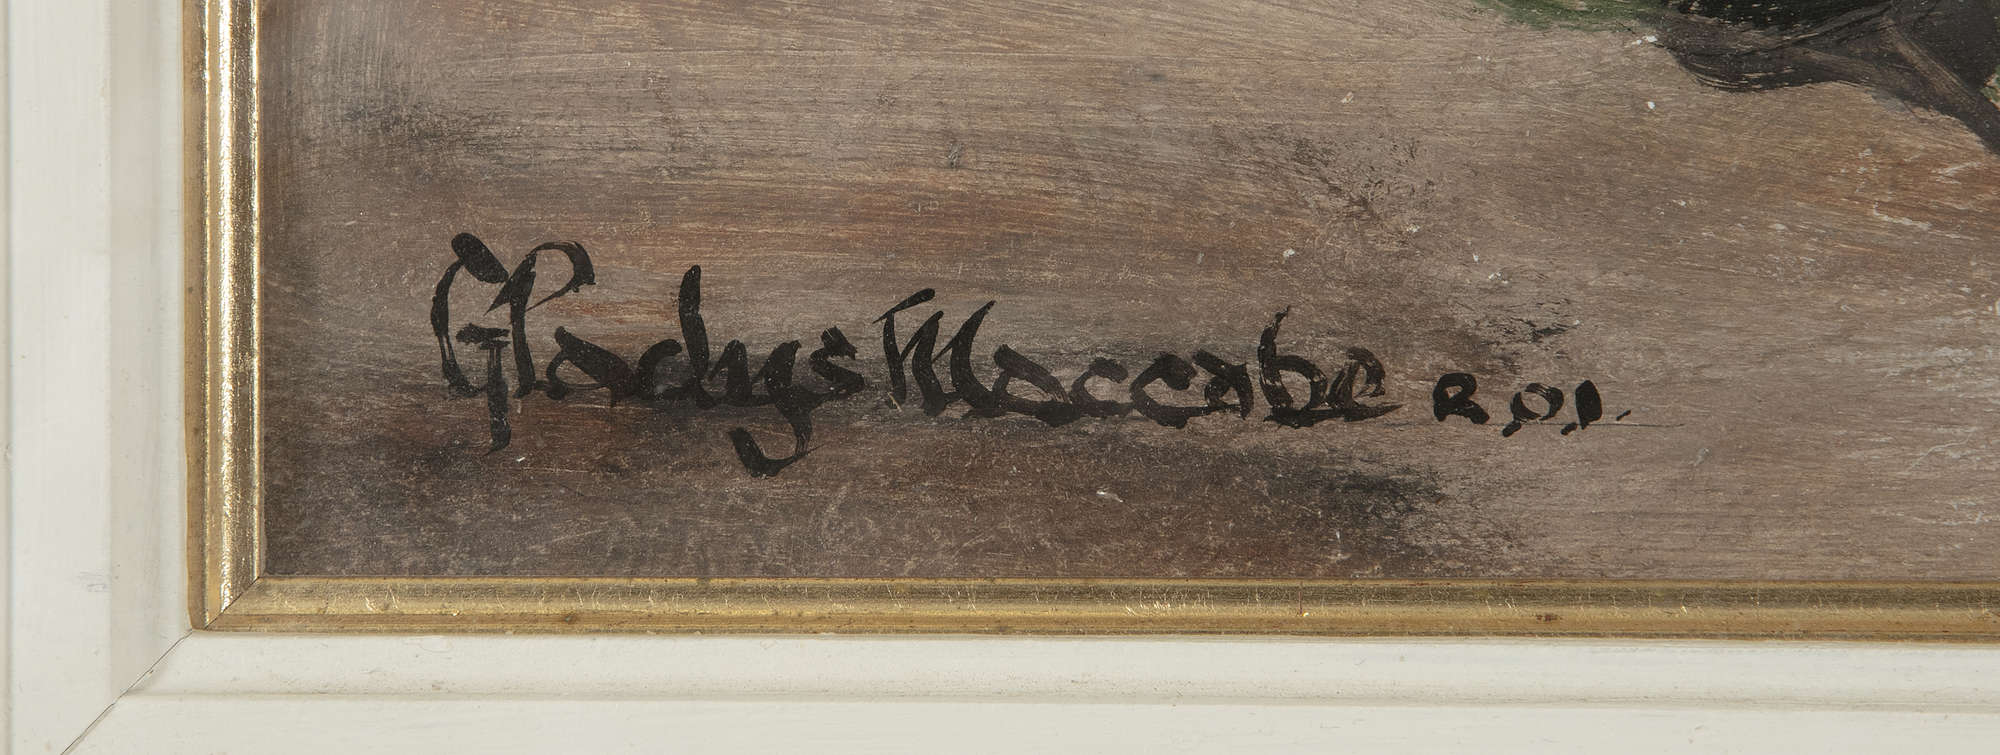 Gladys Maccabe R.O.I.